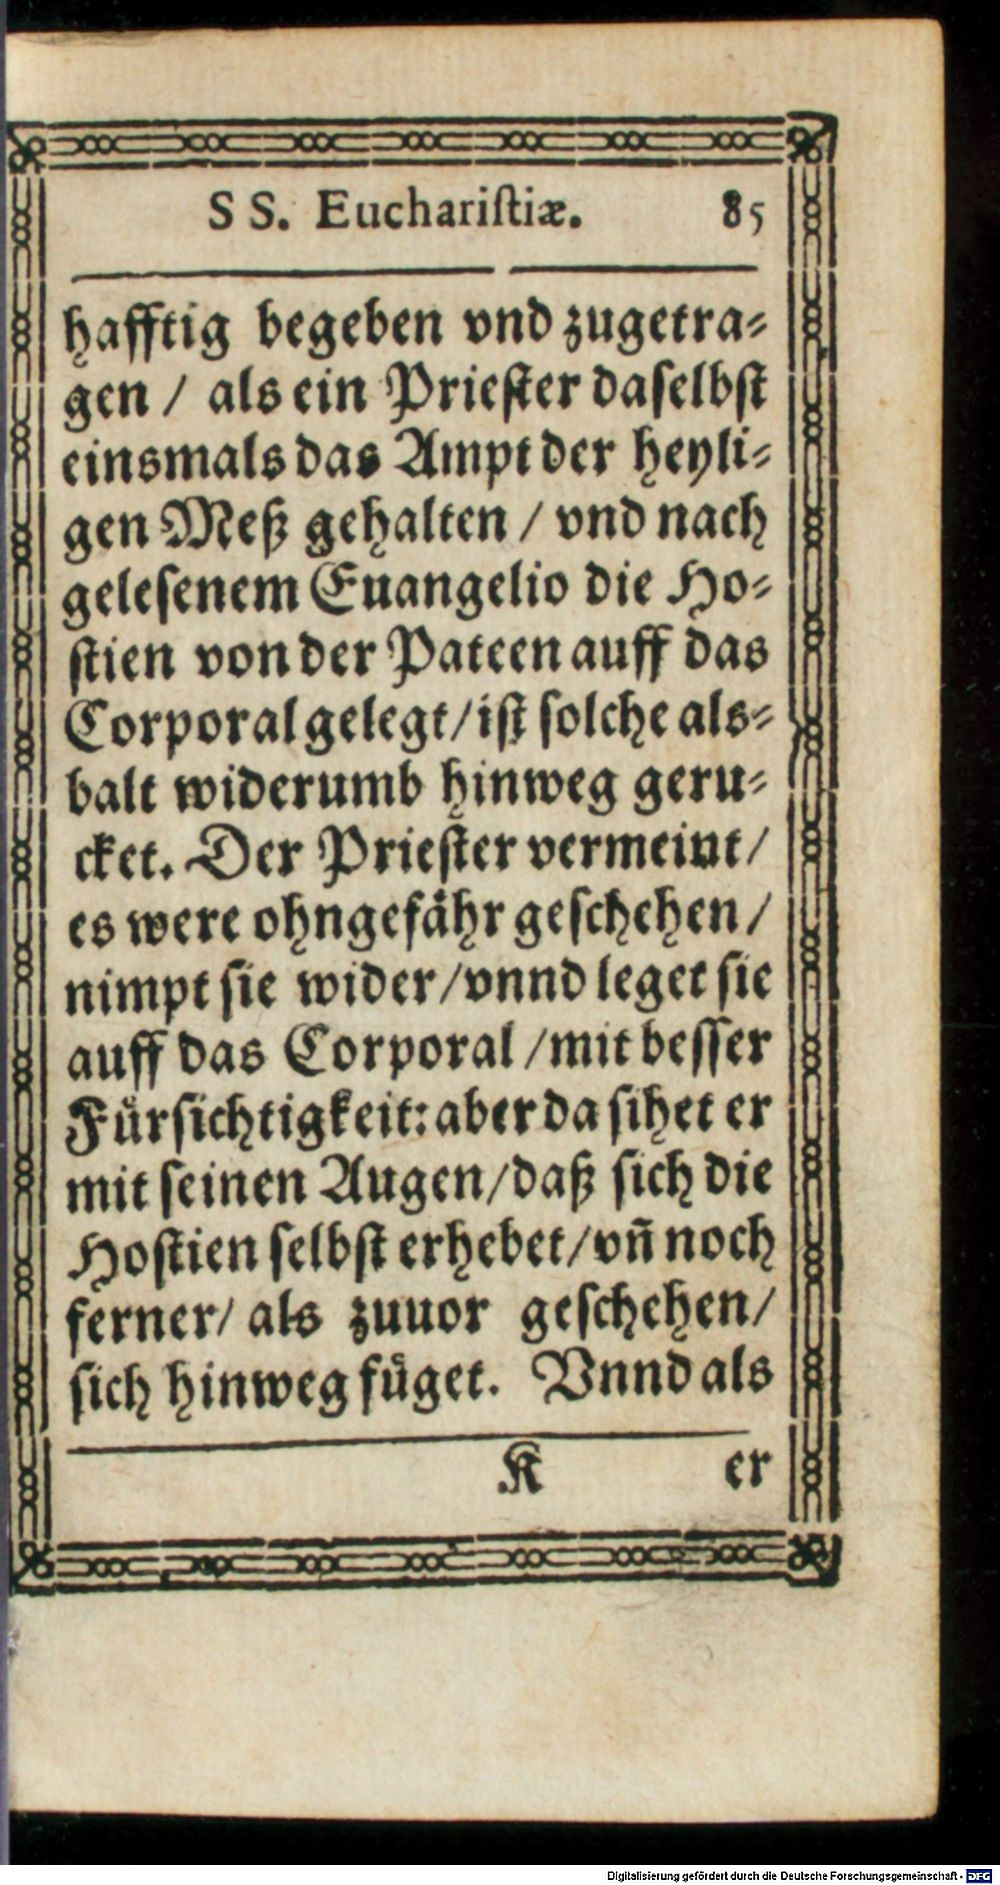 SS. Euchariſtiæ. 85
hafftig begeben vnd zugetra⸗
gen / als ein Prieſter daſelbſt
einsmals das Ampt der heyli⸗
gen Meß gehalten / vnd nach
geleſenem Euangelio die Ho⸗
ſtien von der Pateen auff das
Corporal gelegt / iſt ſolche als⸗
balt widerumb hinweg geru⸗
cket. Der Prieſter vermeint /
es were ohngefaͤhr geſchehen /
nimpt ſie wider / vnnd leget ſie
auff das Corporal / mit beſſer
Fuͤrſichtigkeit: aber da ſihet er
mit ſeinen Augen / daß ſich die
Hoſtien ſelbſt erhebet / vñ noch
ferner / als zuuor geſchehen /
ſich hinweg fuͤget. Vnnd als
K er
Digitalisierung gefördert durch die Deutsche Forschungsgemeinschaft - DFG